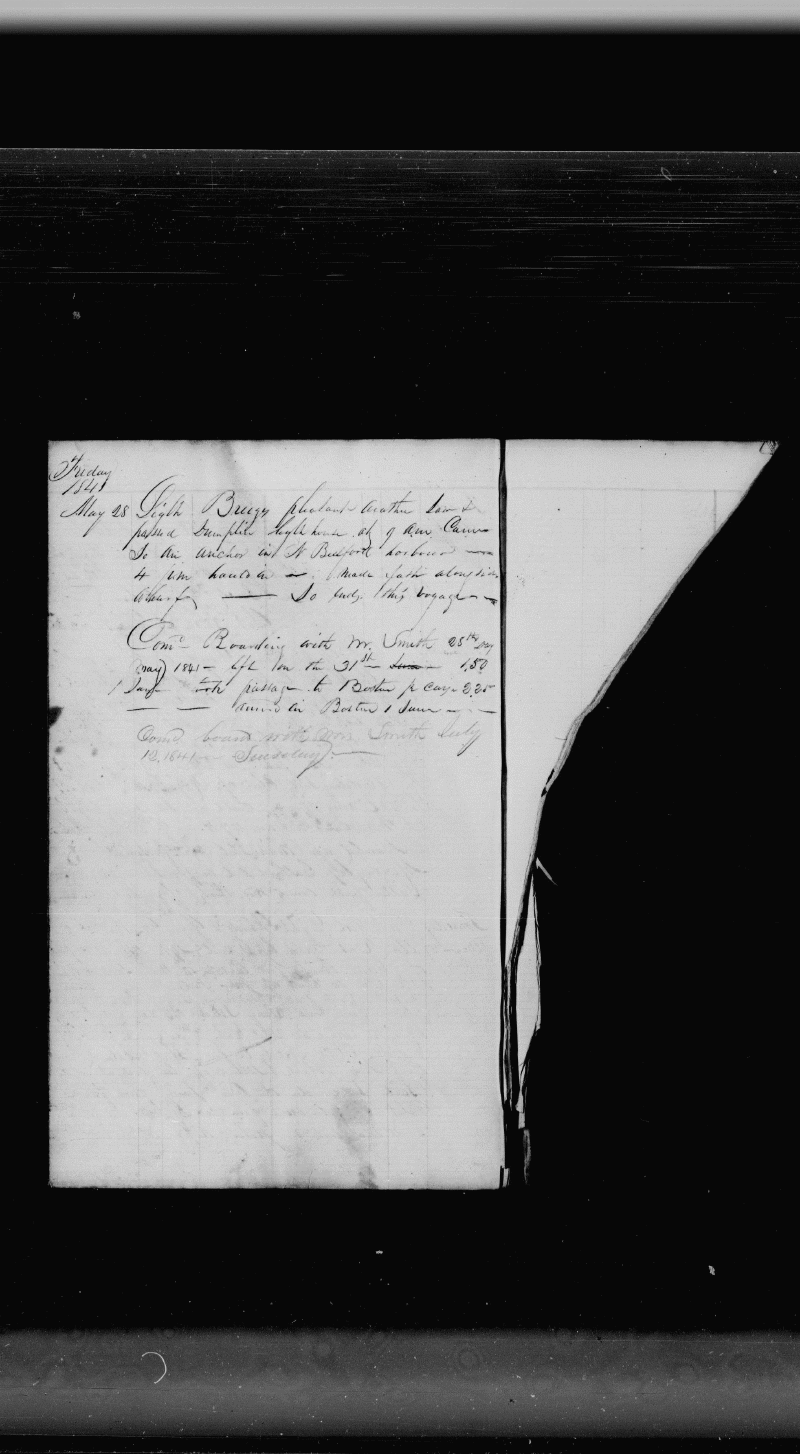 Friday
1841
May 28 Ligth Breezes plesant weather saw &
passed Dumplin ligth house at 9 am Came
To an anchor in N Bedford harbour
4 pm hauld in & made fast alongside
wharf — So Ends this voyage
Comd Boarding with Mr. Smith 28th Day
May 1841 — left on the 31st — 1.50
1 June took passage to Boston pr cars 2.25
— — arived in Boston 1 June
Comd board with Mr Smith July
13, 1841 — Tuesday